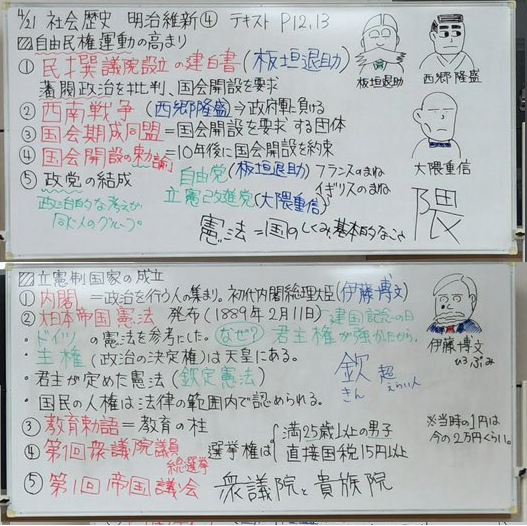 4/21 社会歴史 明治維新④ テキスト P12,13
自由民権運動の高まり
① 民撰議院設立の建白書(板垣退助)
藩閥政治を批判、国会開設を要求
② 西南戦争(西郷隆盛)⇒政府軍に負ける
③ 国会期成同盟=国会開設を要求する団体
④ 国会開設の勅諭=10年後に国会開設を約束
⑤ 政党の結成
自由党(板垣退助)フランスのまね
立憲改進党(大隈重信)イギリスのまね
政治的な考えが
同じ人のグループ。
憲法=国のしくみ、基本的な
板垣退助
西郷隆盛
大隈重信
隈
立憲制国家の成立
① 内閣=政治を行う人の集まり。初代内閣総理大臣(伊藤博文)
② 大日本帝国憲法 発布(1889年2月11日)建国記念の日
・ドイツの憲法を参考にした。なぜ?君主権が強かったから。
・主権(政治の決定権)は天皇にある。
・君主が定めた憲法(欽定憲法)
・国民の人権は法律の範囲内で認められる。
欽
きん
超
えらい人
③ 教育勅語=教育の柱
④ 第1回衆議院議員
総選挙
選挙権は
満25歳以上の男子
直接国税15円以上
⑤ 第1回帝国議会 衆議院と貴族院
伊藤博文
ひろぶみ
※当時の1円は
今の2万円くらい。